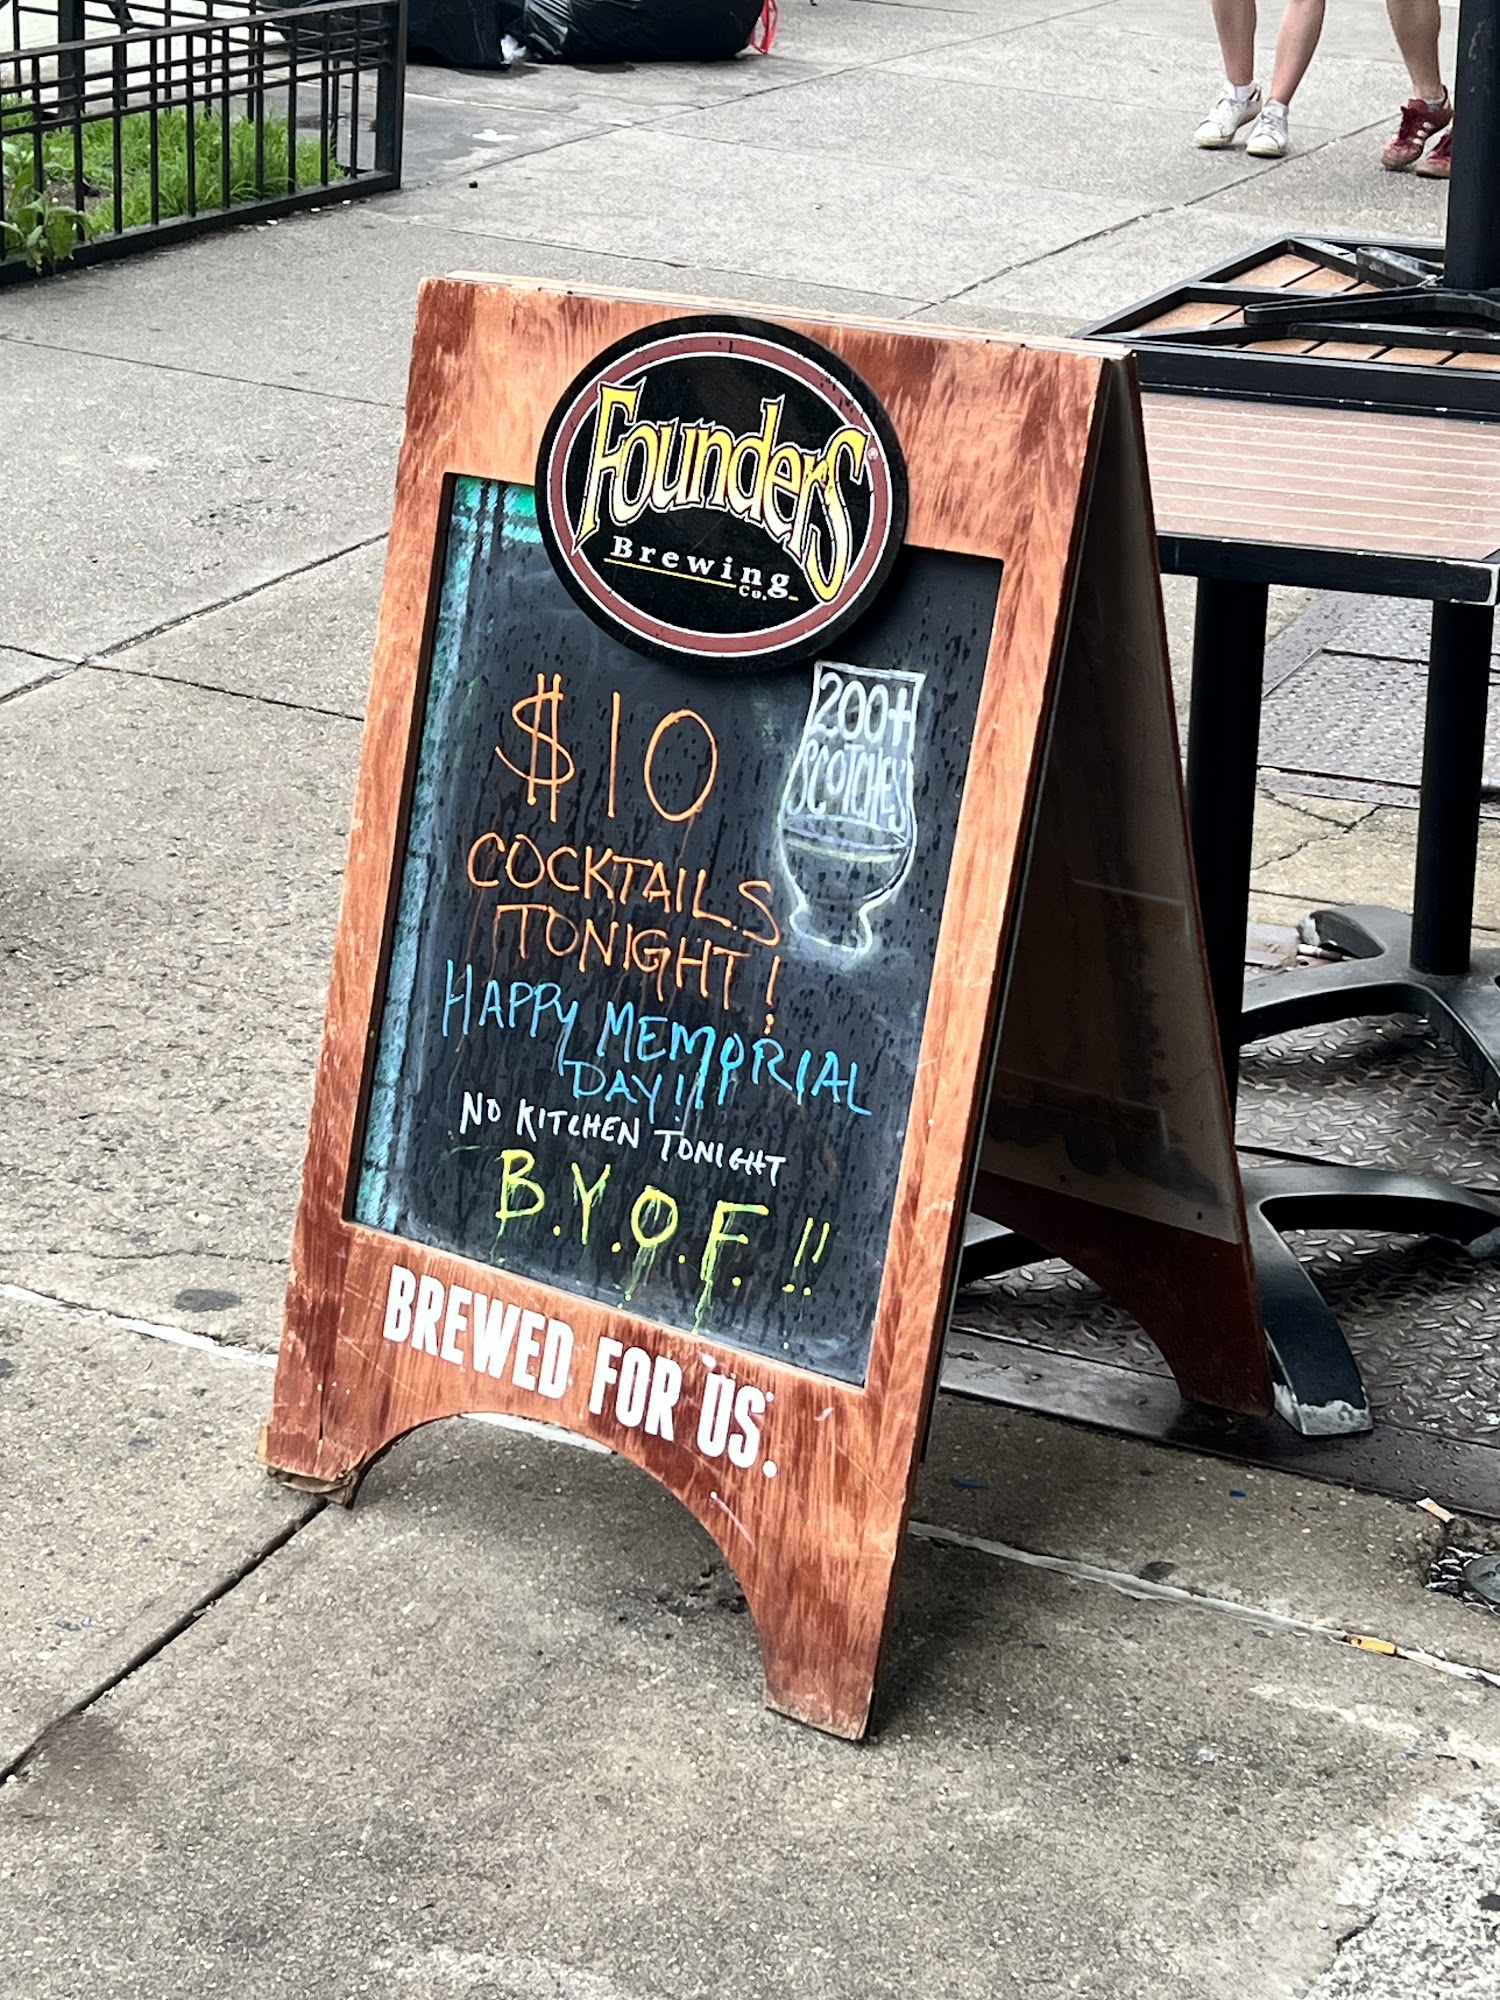 Founders®
Brewing
Co.
$10
COCKTAILS
TONIGHT!
200+
SCOTCHES
HAPPY MEMORIAL
DAY!!!
NO KITCHEN TONIGHT
B.Y.O.F.!!
BREWED FOR US.